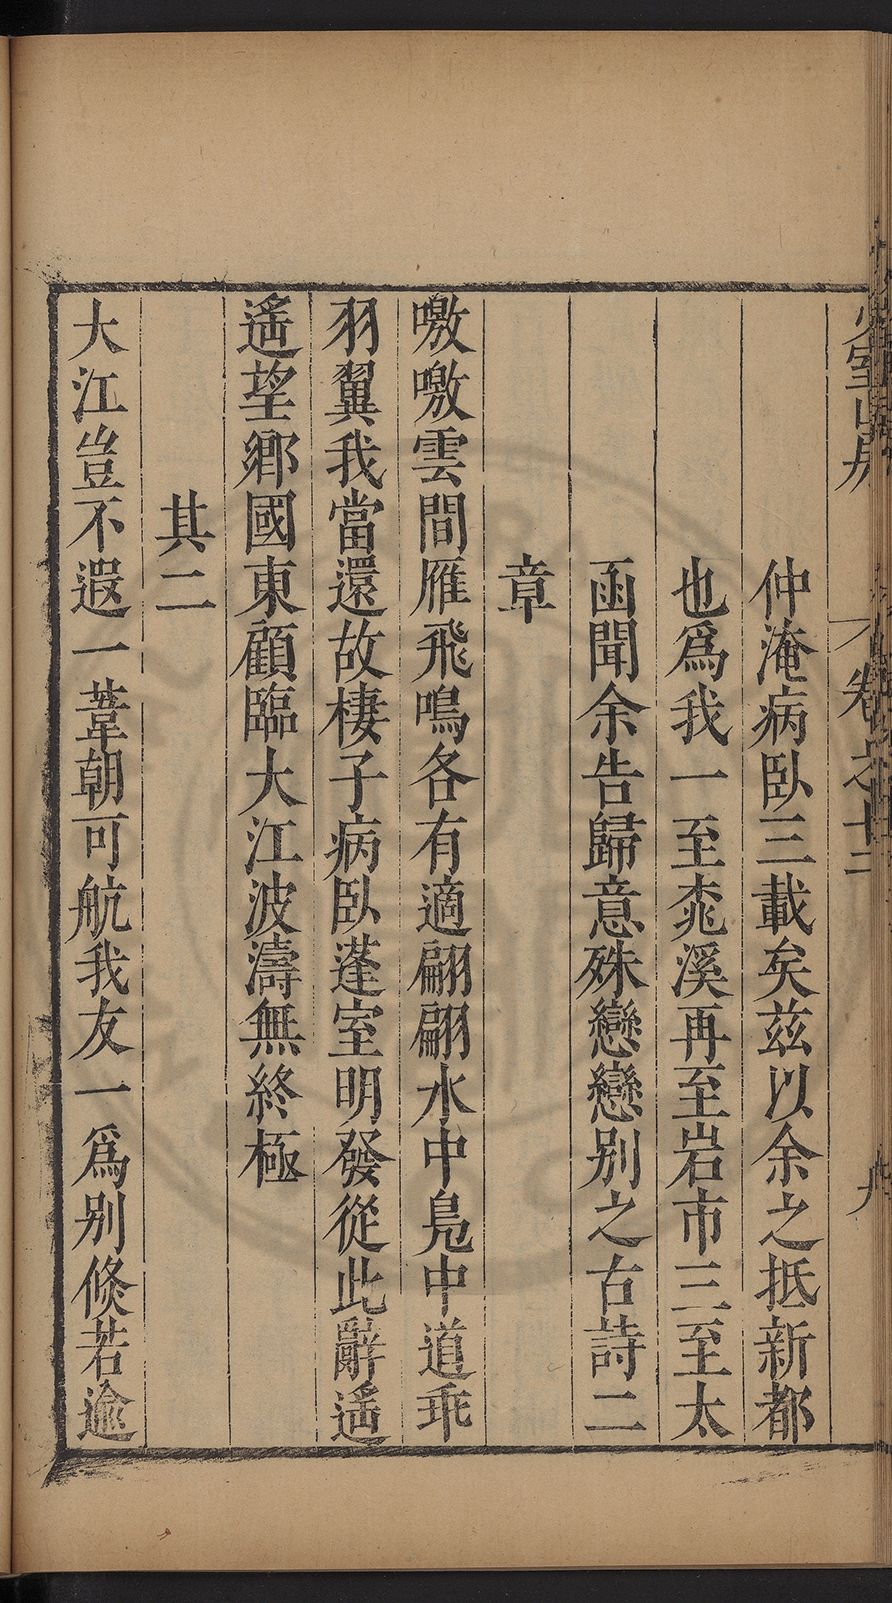 少室山房
卷之十二
九
仲淹病臥三載矣茲以余之抵新都
也爲我一至桃溪再至岩市三至太
函聞余告歸意殊戀戀別之古詩二
章
嗷嗷雲間雁飛鳴各有適翩翩水中鳧中道乖
羽翼我當還故棲子病臥蓬室明發從此辭遥
遥望鄉國東顧臨大江波濤無終極
其二
大江豈不遐一葦朝可航我友一爲別倏若逾